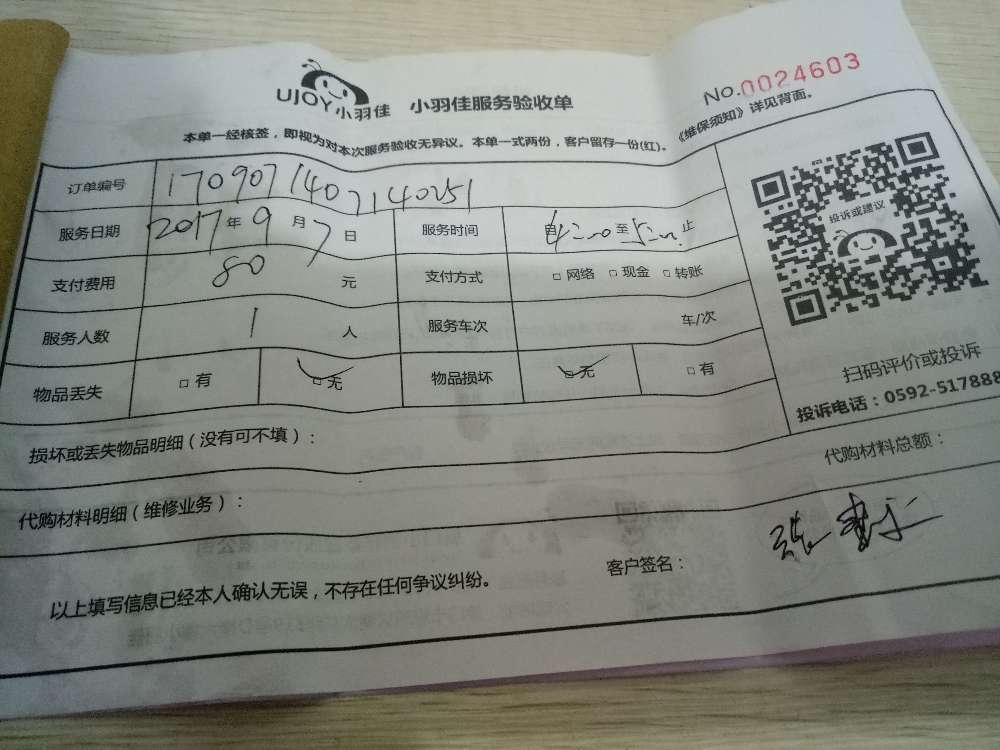 UJOY小羽佳 小羽佳服务验收单
No.0024603
本单一经核签，即视为对本次服务验收无异议。本单一式两份，客户留存一份(红)。 《维保须知》详见背面。
订单编号 1709071402140251
服务日期 2017年9月7日 服务时间 自4:00至5:00止
支付费用 80 元 支付方式 □网络 □现金 □转账
服务人数 1 人 服务车次 车/次
物品丢失 □有 □无 物品损坏 □无 □有
投诉或建议
扫码评价或投诉
投诉电话：0592-517888
损坏或丢失物品明细（没有可不填）：
代购材料明细（维修业务）： 代购材料总额：
以上填写信息已经本人确认无误，不存在任何争议纠纷。 客户签名：